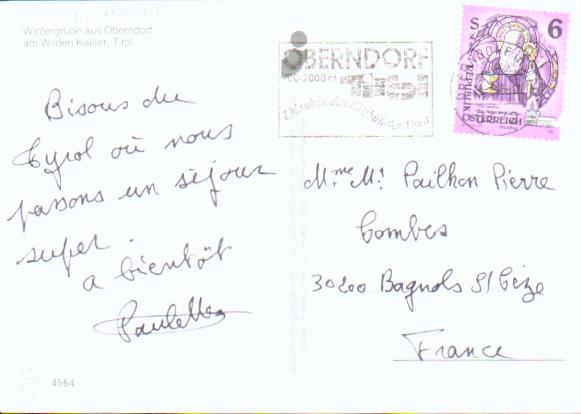 Wintergrüße aus Oberndorf
am Wilden Kaiser, Tirol
OBERNDORF
700-2000 m
Tirol
Urlaub in den Kitzbüheler Alpen
S 6
REPUBLIK
ÖSTERREICH
Bisous du
Tyrol où nous
passons un séjour
super.
a bientôt
Paulette
Mme Mr Pailhon Pierre
Combes
30200 Bagnols S/ Cèze
France
4564